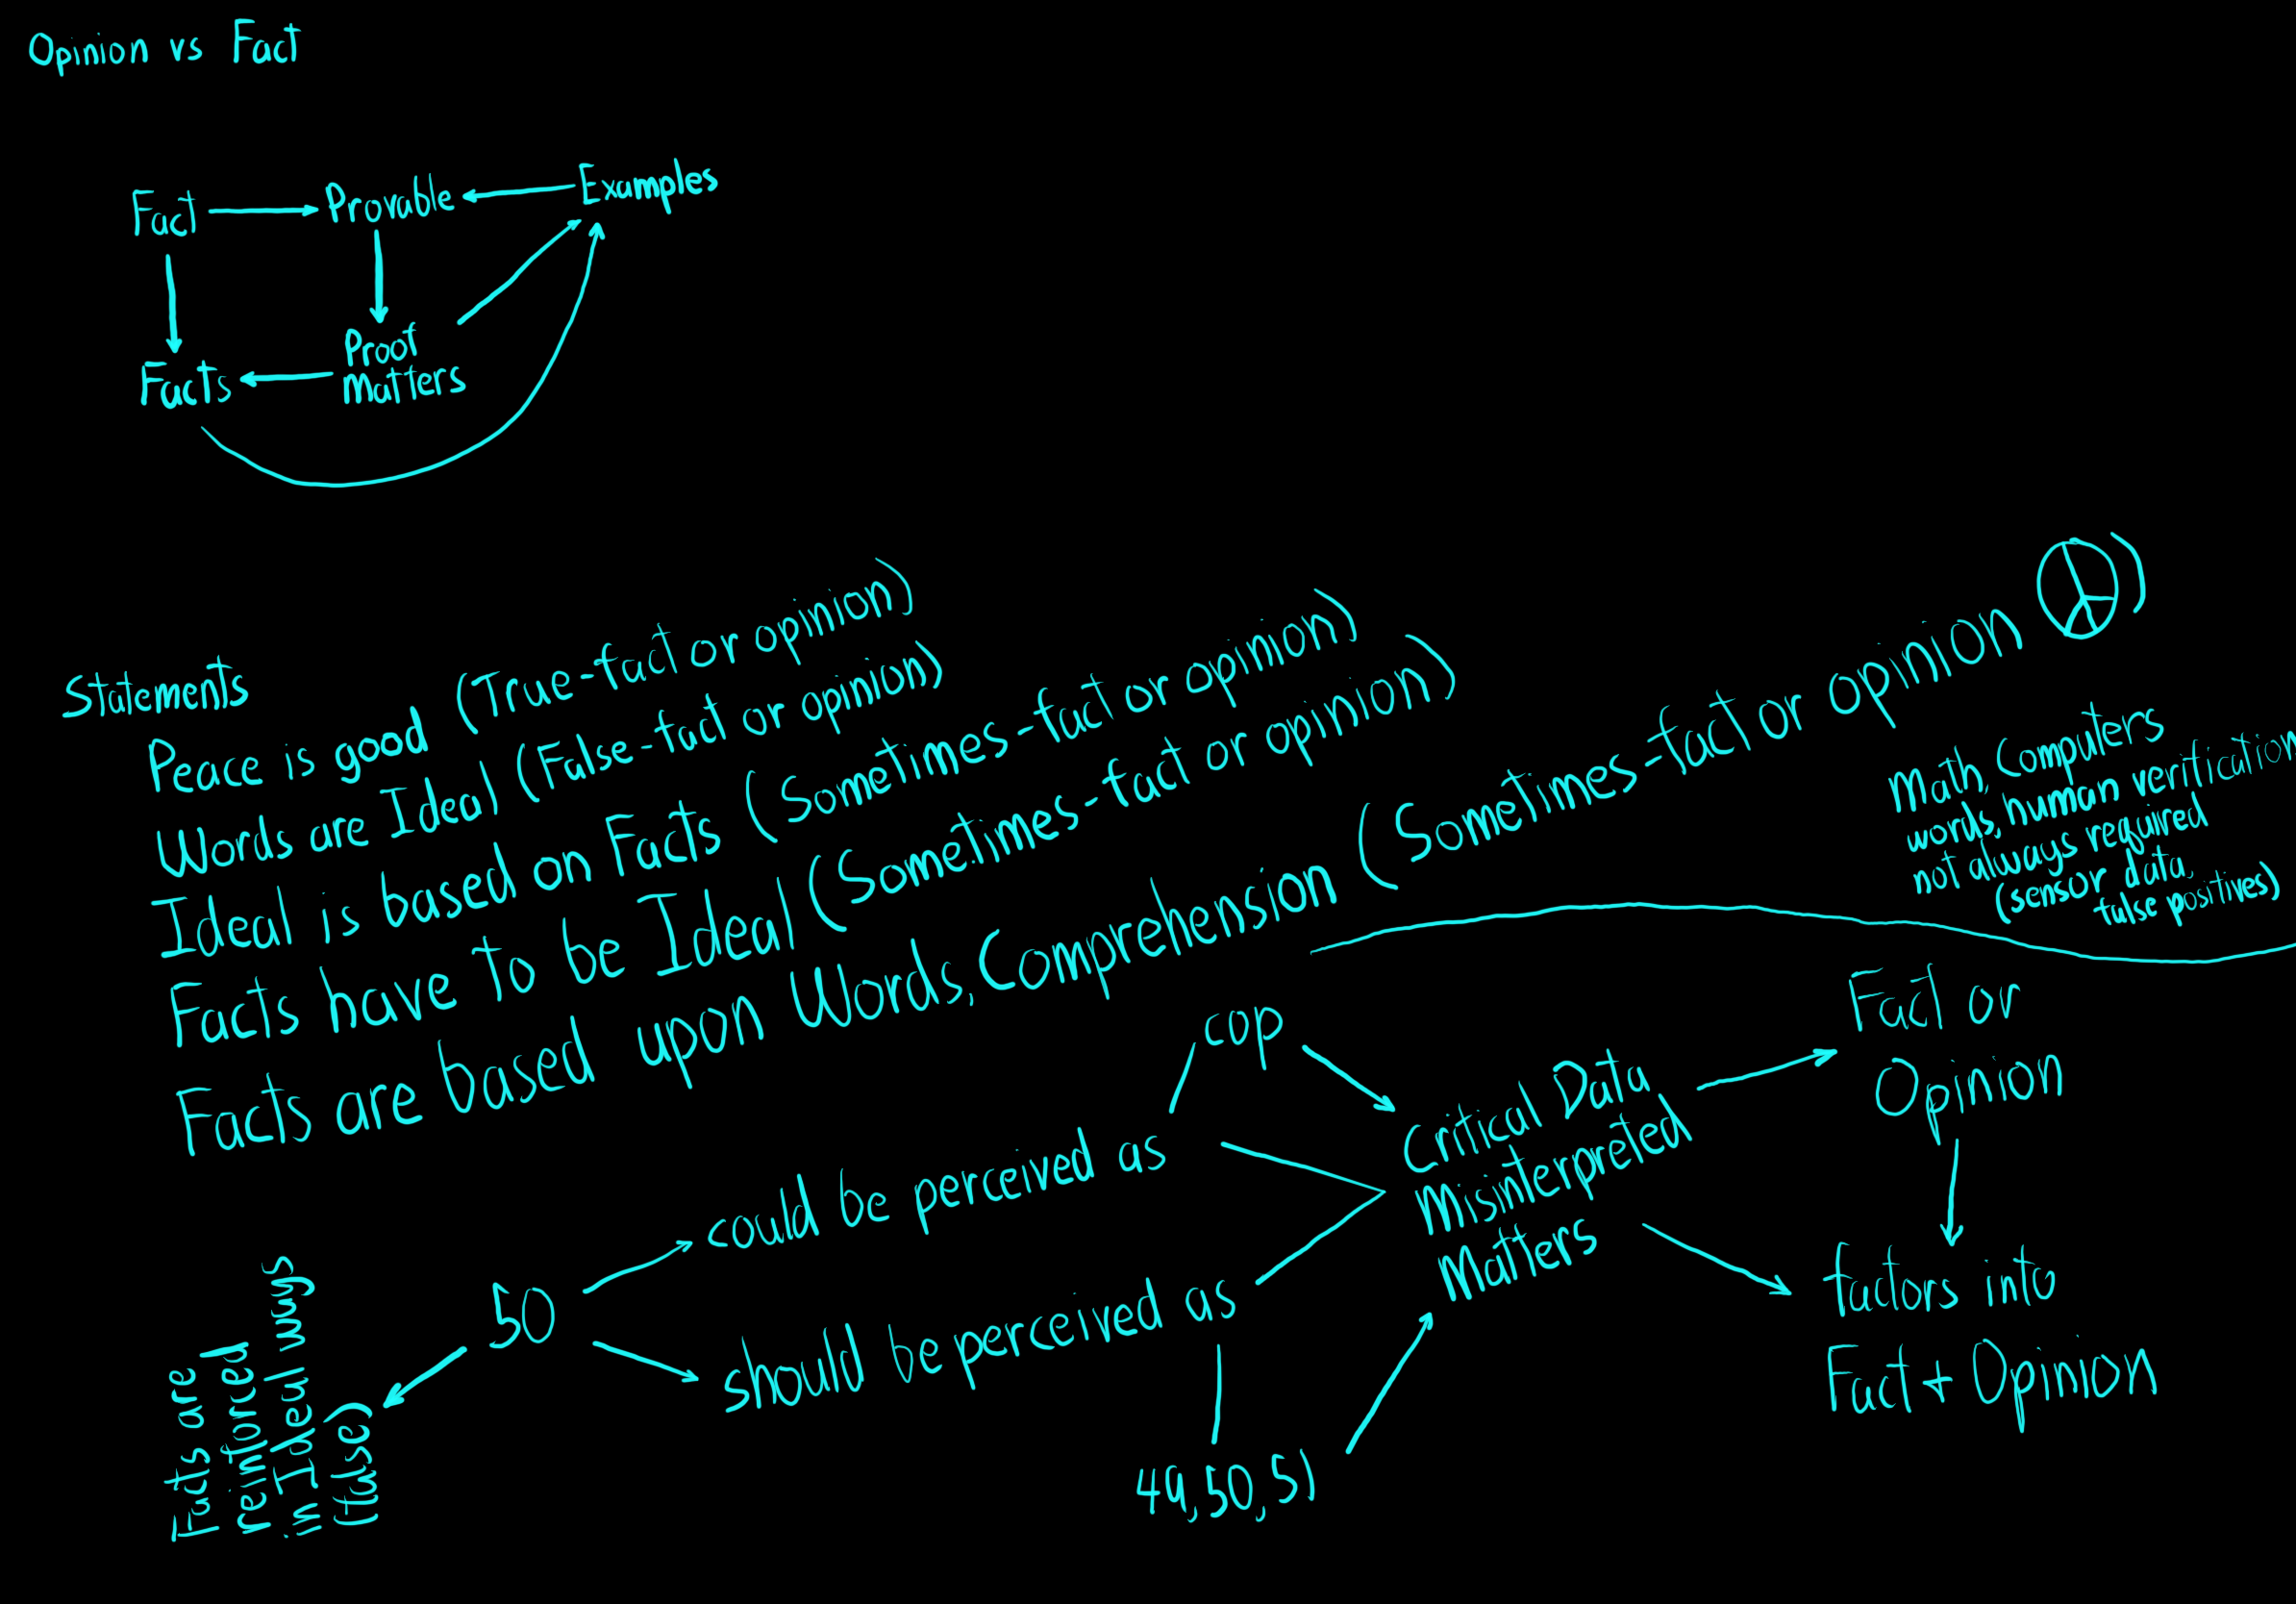 Opinion vs Fact
Fact
Provable
Examples
Facts
Proof
matters
Statements
Peace is good (True-fact or opinion)
Words are Ideal (False-fact or opinion)
Ideal is based on Facts (Sometimes-fact or opinion)
Facts have to be Ideal (Sometimes-fact or opinion)
Facts are based upon Words, Comprehension (Sometimes-fact or opinion )
Math, Computers
words, human verification
not always required
(sensor data,
false positives)
cop
could be perceived as
50
should be perceived as
49, 50, 51
Critical Data
Misinterpreted
Matters
Fact or
Opinion
factors into
Fact + Opinion
Facts are
reinforced
in Ideal ways
(false)